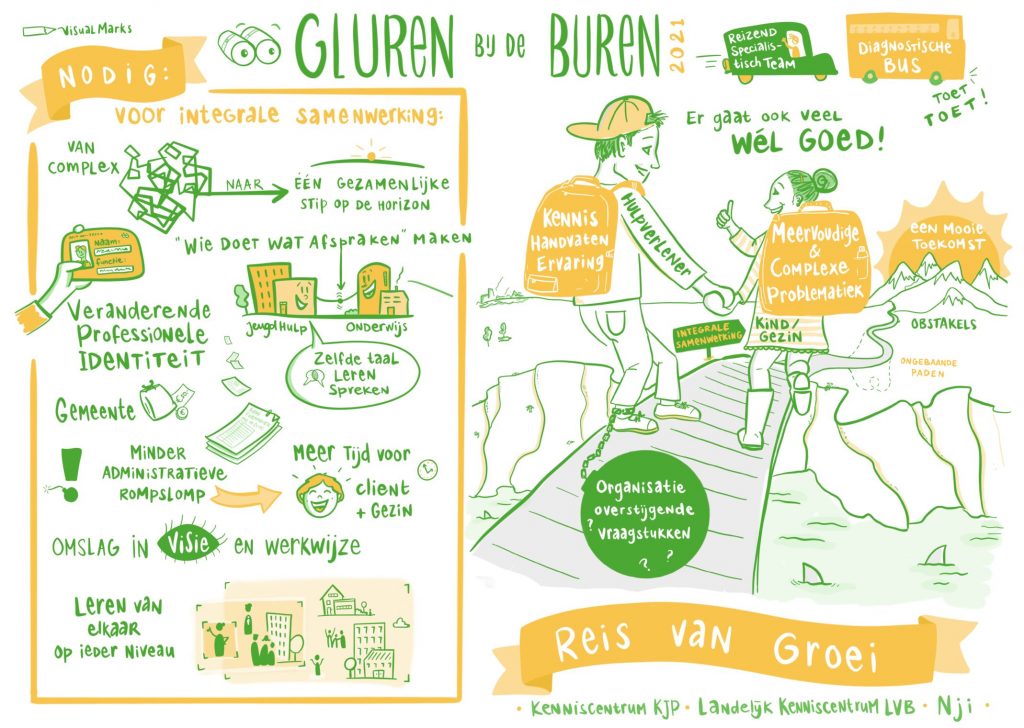 Visual Marks
GLUREN BIJ DE BUREN 2021
NODIG:
VOOR INTEGRALE SAMENWERKING:
VAN
COMPLEX
NAAR
ÉÉN GEZAMENLIJKE
STIP OP DE HORIZON
"WIE DOET WAT AFSPRAKEN" MAKEN
Naam:
functie:
Veranderende
Professionele
IDENTITEIT
JeugdHulp
ONDERWIJS
Zelfde taal
Leren
Spreken
Gemeente
MINDER
ADMINISTRATIEVE
ROMPSLOMP
MEER Tijd voor
client
+ Gezin
OMSLAG IN VISIE EN WERKWIJZE
Leren van
elkaar
Op ieder Niveau
Reizend
Specialis-
tisch Team
Diagnostische
BUS
TOET
TOET!
Er gaat ook veel
WÉL GOED!
Kennis
Handvaten
Ervaring
Hulpverlener
Meervoudige
&
Complexe
Problematiek
EEN MOOIE
TOEKOMST
OBSTAKELS
INTEGRALE
SAMENWERKING
KIND/
GEZIN
ONGEBAANDE
PADEN
Organisatie
overstijgende
vraagstukken
? ? ?
Reis van Groei
• Kenniscentrum KJP • Landelijk Kenniscentrum LVB • Nji •